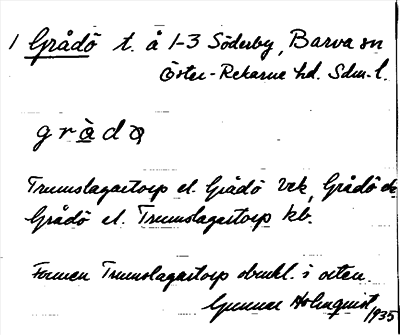 1 Grådö t. å 1-3 Söderby, Barva sn
Öster-Rekarne hd. Sdm. l.
gràdọ
Trumslagartorp el. Grådö Vek, Grådö ek
Grådö el. Trumslagartorp kb.
Formen Trumslagartorp obrukl. i orten.
Gunnar Holmquist 1935